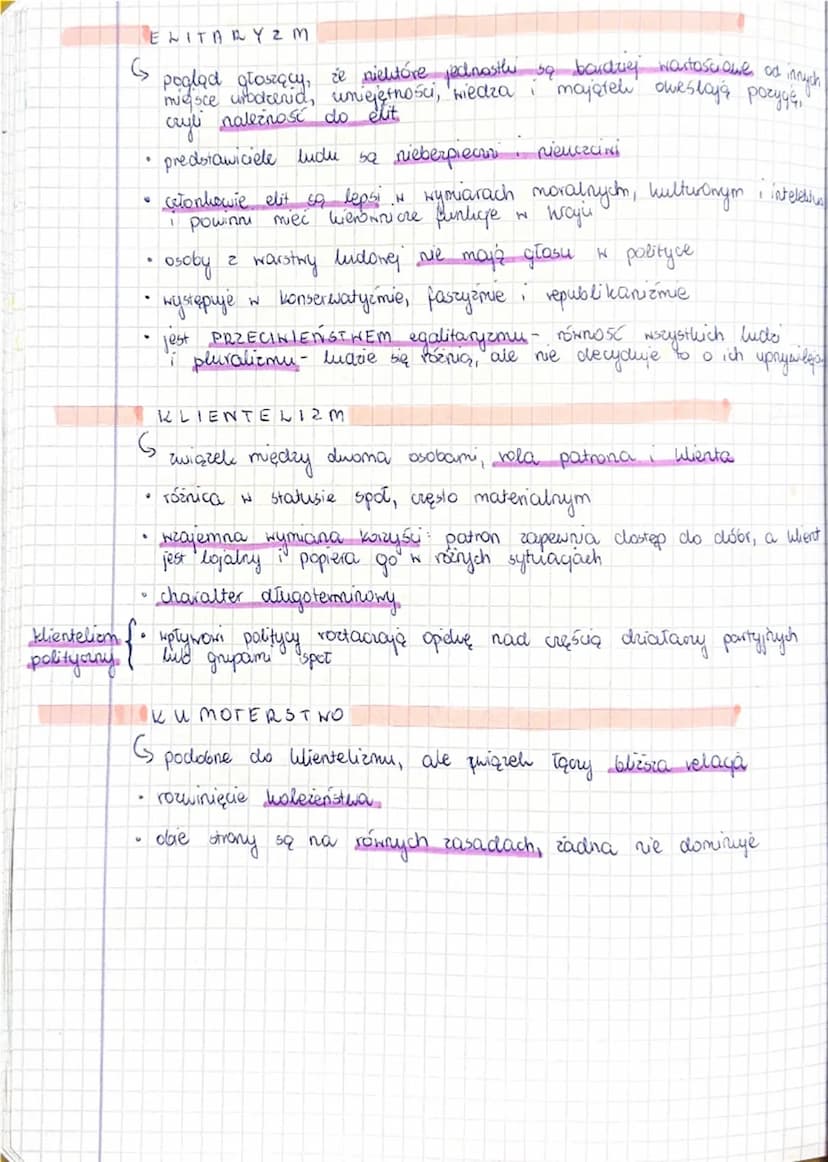 ELITARYZM
↳ pogląd głoszący, że niektóre jednostki są bardziej wartościowe od innych
miejsce urodzenia, umiejętności, wiedza i majątek określają pozycję,
czyli należność do elit
• przedstawiciele ludu są niebezpieczni i nieuczciwi
• członkowie elit są lepsi w wymiarach moralnych, kulturonym i intelektua
i powinni mieć kierownicze funkcje w kraju
• osoby z warstwy ludowej nie mają głosu w polityce
• występuje w konserwatyźmie, faszyźmie i republikaniźmie
• jest PRZECIWIEŃSTWEM egalitaryzmu - równość wszystkich ludzi
i pluralizmu - ludzie się różnią, ale nie decyduje to o ich uprzywileja
KLIENTELIZM
↳ związek między dwoma osobami, rola patrona i klienta
• różnica w statusie społ, często materialnym
• wzajemna wymiana korzyści: patron zapewnia dostęp do dóbr, a klient
jest lojalny i popiera go w różnych sytuacjach
• charakter długoterminowy
klientelizm
polityczny
• wpływowi politycy roztaczają opiekę nad częścią działaczy partyjnych
lub grupami społ
KUMOTERSTWO
↳ podobne do klientelizmu, ale związek łączy bliższa relacja
• rozwinięcie koleżeństwa
• obie strony są na równych zasadach, żadna nie dominuje